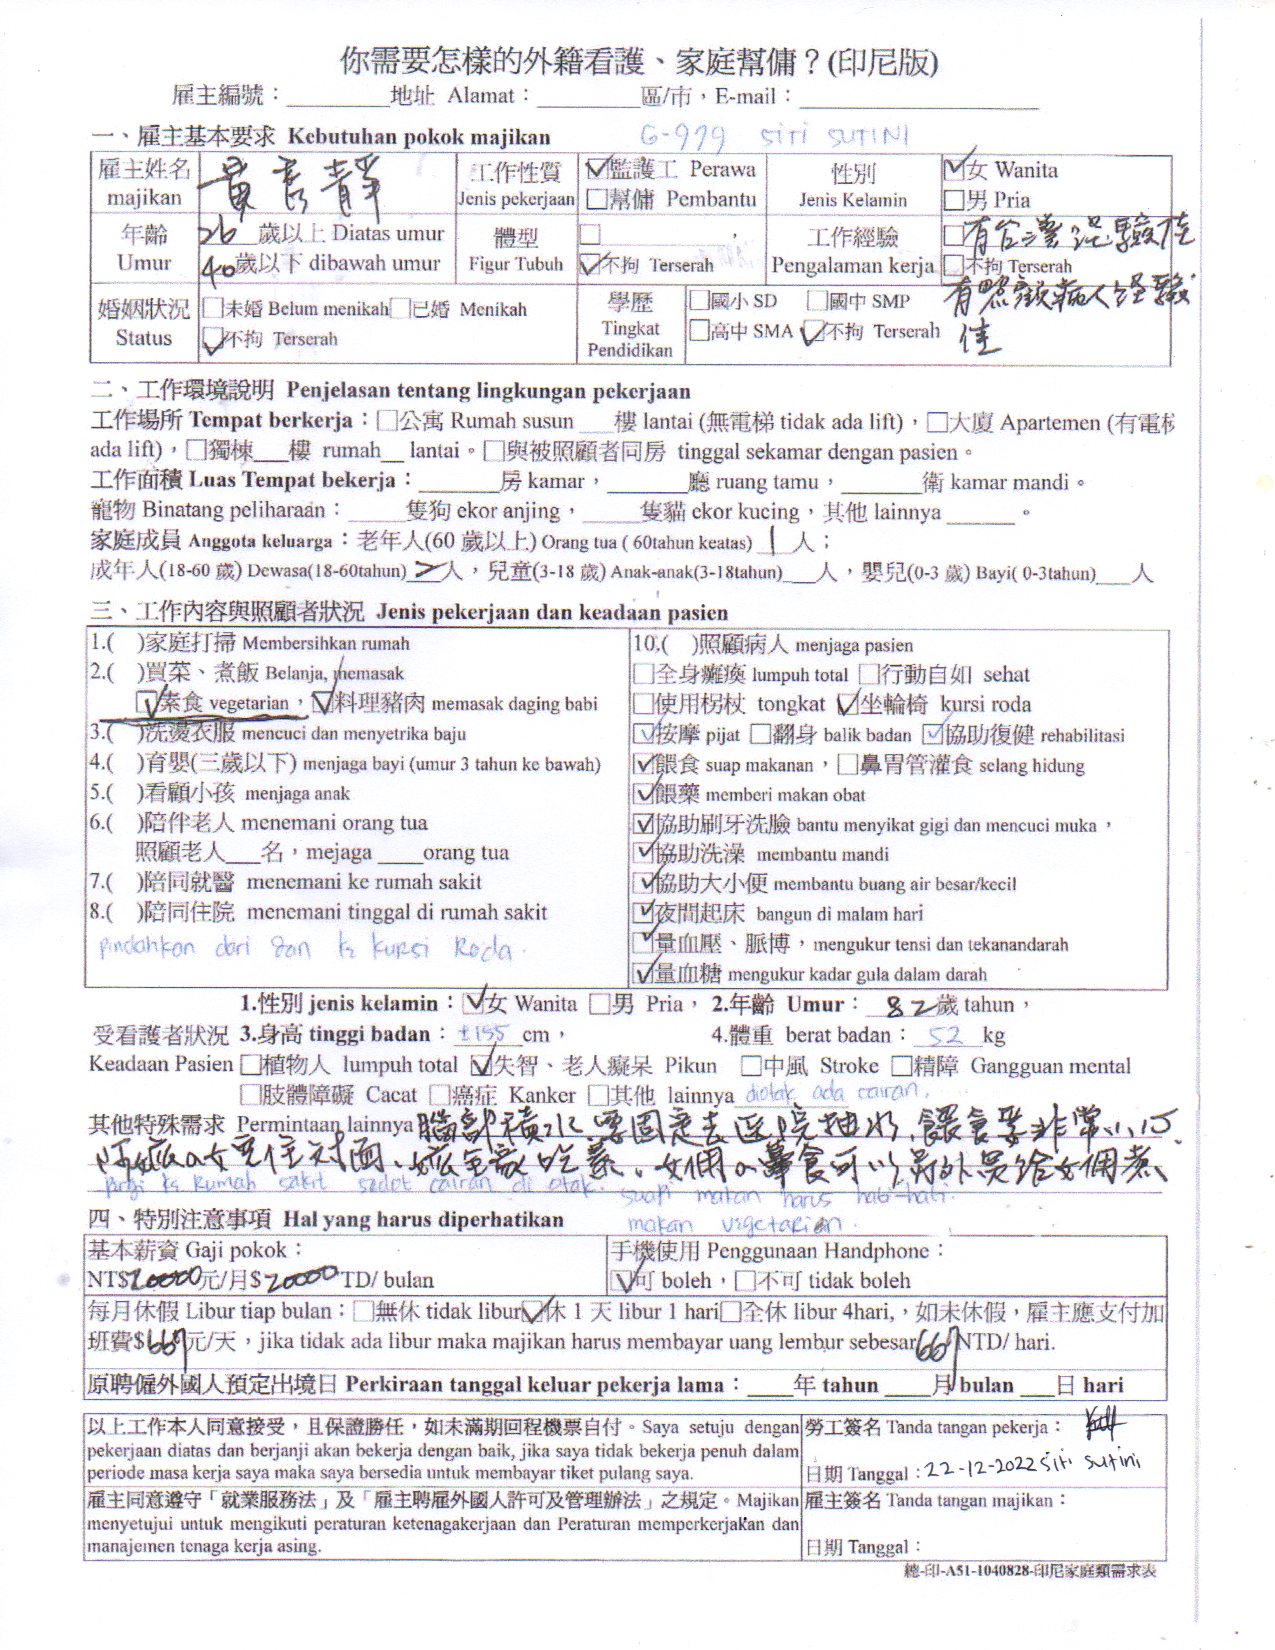 你需要怎樣的外籍看護、家庭幫傭？(印尼版)
雇主編號：________地址 Alamat：________區/市，E-mail：________
一、雇主基本要求 Kebutuhan pokok majikan G-979 SITI SUTINI
雇主姓名 majikan 黃 青 工作性質 Jenis pekerjaan ☑監護工 Perawa ☐幫傭 Pembantu 性別 Jenis Kelamin ☑女 Wanita ☐男 Pria
年齡 Umur 26 歲以上 Diatas umur 40歲以下 dibawah umur 體型 Figur Tubuh ☐ , ☑不拘 Terserah 工作經驗 Pengalaman kerja ☐有台灣經驗佳 ☐不拘 Terserah
有照顧病人經驗佳
婚姻狀況 Status ☐未婚 Belum menikah ☐已婚 Menikah ☑不拘 Terserah 學歷 Tingkat Pendidikan ☐國小 SD ☐國中 SMP ☐高中 SMA ☑不拘 Terserah
二、工作環境說明 Penjelasan tentang lingkungan pekerjaan
工作場所 Tempat berkerja：☐公寓 Rumah susun ___樓 lantai (無電梯 tidak ada lift)，☐大廈 Apartemen (有電梯
ada lift)，☐獨棟___樓 rumah__ lantai。☐與被照顧者同房 tinggal sekamar dengan pasien。
工作面積 Luas Tempat bekerja：______房 kamar，______廳 ruang tamu，______衛 kamar mandi。
寵物 Binatang peliharaan：_____隻狗 ekor anjing，_____隻貓 ekor kucing，其他 lainnya _____。
家庭成員 Anggota keluarga：老年人(60 歲以上) Orang tua ( 60tahun keatas) 1 人；
成年人(18-60 歲) Dewasa(18-60tahun) 人，兒童(3-18 歲) Anak-anak(3-18tahun)___人，嬰兒(0-3 歲) Bayi( 0-3tahun)___人
三、工作內容與照顧者狀況 Jenis pekerjaan dan keadaan pasien
1.( )家庭打掃 Membersihkan rumah
2.( )買菜、煮飯 Belanja, memasak
☑素食 vegetarian，☑料理豬肉 memasak daging babi
3.( )洗燙衣服 mencuci dan menyetrika baju
4.( )育嬰(三歲以下) menjaga bayi (umur 3 tahun ke bawah)
5.( )看顧小孩 menjaga anak
6.( )陪伴老人 menemani orang tua
照顧老人___名，mejaga ____orang tua
7.( )陪同就醫 menemani ke rumah sakit
8.( )陪同住院 menemani tinggal di rumah sakit
pindahkan dari ke kursi Roda.
10.( )照顧病人 menjaga pasien
☐全身癱瘓 lumpuh total ☐行動自如 sehat
☐使用柺杖 tongkat ☑坐輪椅 kursi roda
☑按摩 pijat ☐翻身 balik badan ☑協助復健 rehabilitasi
☑餵食 suap makanan，☐鼻胃管灌食 selang hidung
☑餵藥 memberi makan obat
☑協助刷牙洗臉 bantu menyikat gigi dan mencuci muka，
☑協助洗澡 membantu mandi
☑協助大小便 membantu buang air besar/kecil
☑夜間起床 bangun di malam hari
☑量血壓、脈博，mengukur tensi dan tekanandarah
☑量血糖 mengukur kadar gula dalam darah
1.性別 jenis kelamin：☑女 Wanita ☐男 Pria，2.年齡 Umur：82歲 tahun，
受看護者狀況 3.身高 tinggi badan：±155 cm，4.體重 berat badan：52 kg
Keadaan Pasien ☐植物人 lumpuh total ☑失智、老人癡呆 Pikun ☐中風 Stroke ☐精障 Gangguan mental
☐肢體障礙 Cacat ☐癌症 Kanker ☐其他 lainnya diotak ada cairan.
其他特殊需求 Permintaan lainnya 腦部積水、要固定去医院抽水、餵食要非常小心、
阿嬤の女兒住対面、 全家吃素、女佣の葷食可以另外買給女佣煮
pergi ke Rumah sakit sedot cairan di otak. suapi makan harus hati-hati.
makan vigetarian.
四、特別注意事項 Hal yang harus diperhatikan
基本薪資 Gaji pokok： 手機使用 Penggunaan Handphone：
NT$20000元/月$20000 TD/ bulan ☑可 boleh，☐不可 tidak boleh
每月休假 Libur tiap bulan：☐無休 tidak libur☑休 1 天 libur 1 hari☐全休 libur 4hari,，如未休假，雇主應支付加
班費$667元/天，jika tidak ada libur maka majikan harus membayar uang lembur sebesar667NTD/ hari.
原聘僱外國人預定出境日 Perkiraan tanggal keluar pekerja lama：____年 tahun ____月 bulan ___日 hari
以上工作本人同意接受，且保證勝任，如未滿期回程機票自付。Saya setuju dengan
pekerjaan diatas dan berjanji akan bekerja dengan baik, jika saya tidak bekerja penuh dalam
periode masa kerja saya maka saya bersedia untuk membayar tiket pulang saya.
勞工簽名 Tanda tangan pekerja：
日期 Tanggal：22-12-2022 Siti Sutini
雇主同意遵守「就業服務法」及「雇主聘雇外國人許可及管理辦法」之規定。Majikan
menyetujui untuk mengikuti peraturan ketenagakerjaan dan Peraturan memperkerjakan dan
manajemen tenaga kerja asing.
雇主簽名 Tanda tangan majikan：
日期 Tanggal：
總-印-A51-1040828-印尼家庭類需求表